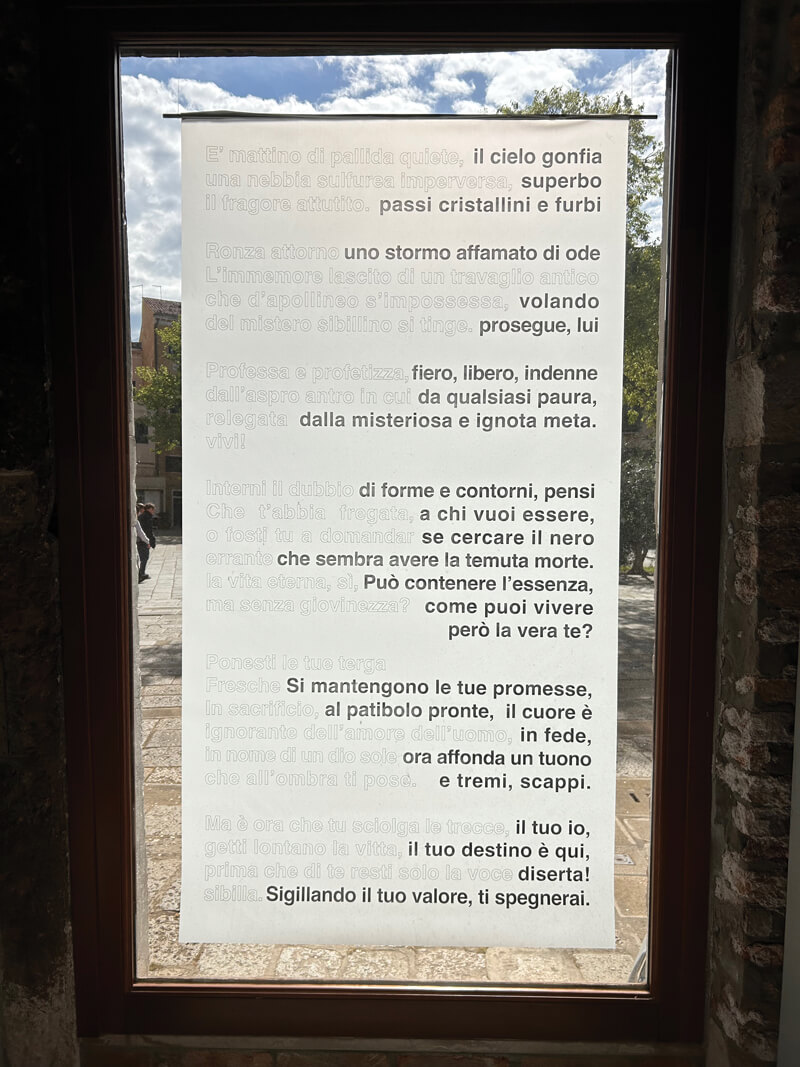 E' mattino di pallida quiete, il cielo gonfia
una nebbia sulfurea imperversa, superbo
il fragore attutito. passi cristallini e furbi
Ronza attorno uno stormo affamato di ode
L'immemore lascito di un travaglio antico
che d'apollineo s'impossessa, volando
del mistero sibillino si tinge. prosegue, lui
Professa e profetizza, fiero, libero, indenne
dall'aspro antro in cui da qualsiasi paura,
relegata dalla misteriosa e ignota meta.
vivi!
Interni il dubbio di forme e contorni, pensi
Che t'abbia fregata, a chi vuoi essere,
o fosti tu a domandar se cercare il nero
errante che sembra avere la temuta morte.
la vita eterna, sì, Può contenere l'essenza,
ma senza giovinezza? come puoi vivere
però la vera te?
Ponesti le tue terga
Fresche Si mantengono le tue promesse,
In sacrificio, al patibolo pronte, il cuore è
ignorante dell'amore dell'uomo, in fede,
in nome di un dio sole ora affonda un tuono
che all'ombra ti pose. e tremi, scappi.
Ma è ora che tu sciolga le trecce, il tuo io,
getti lontano la vitta, il tuo destino è qui,
prima che di te resti solo la voce diserta!
sibilla. Sigillando il tuo valore, ti spegnerai.